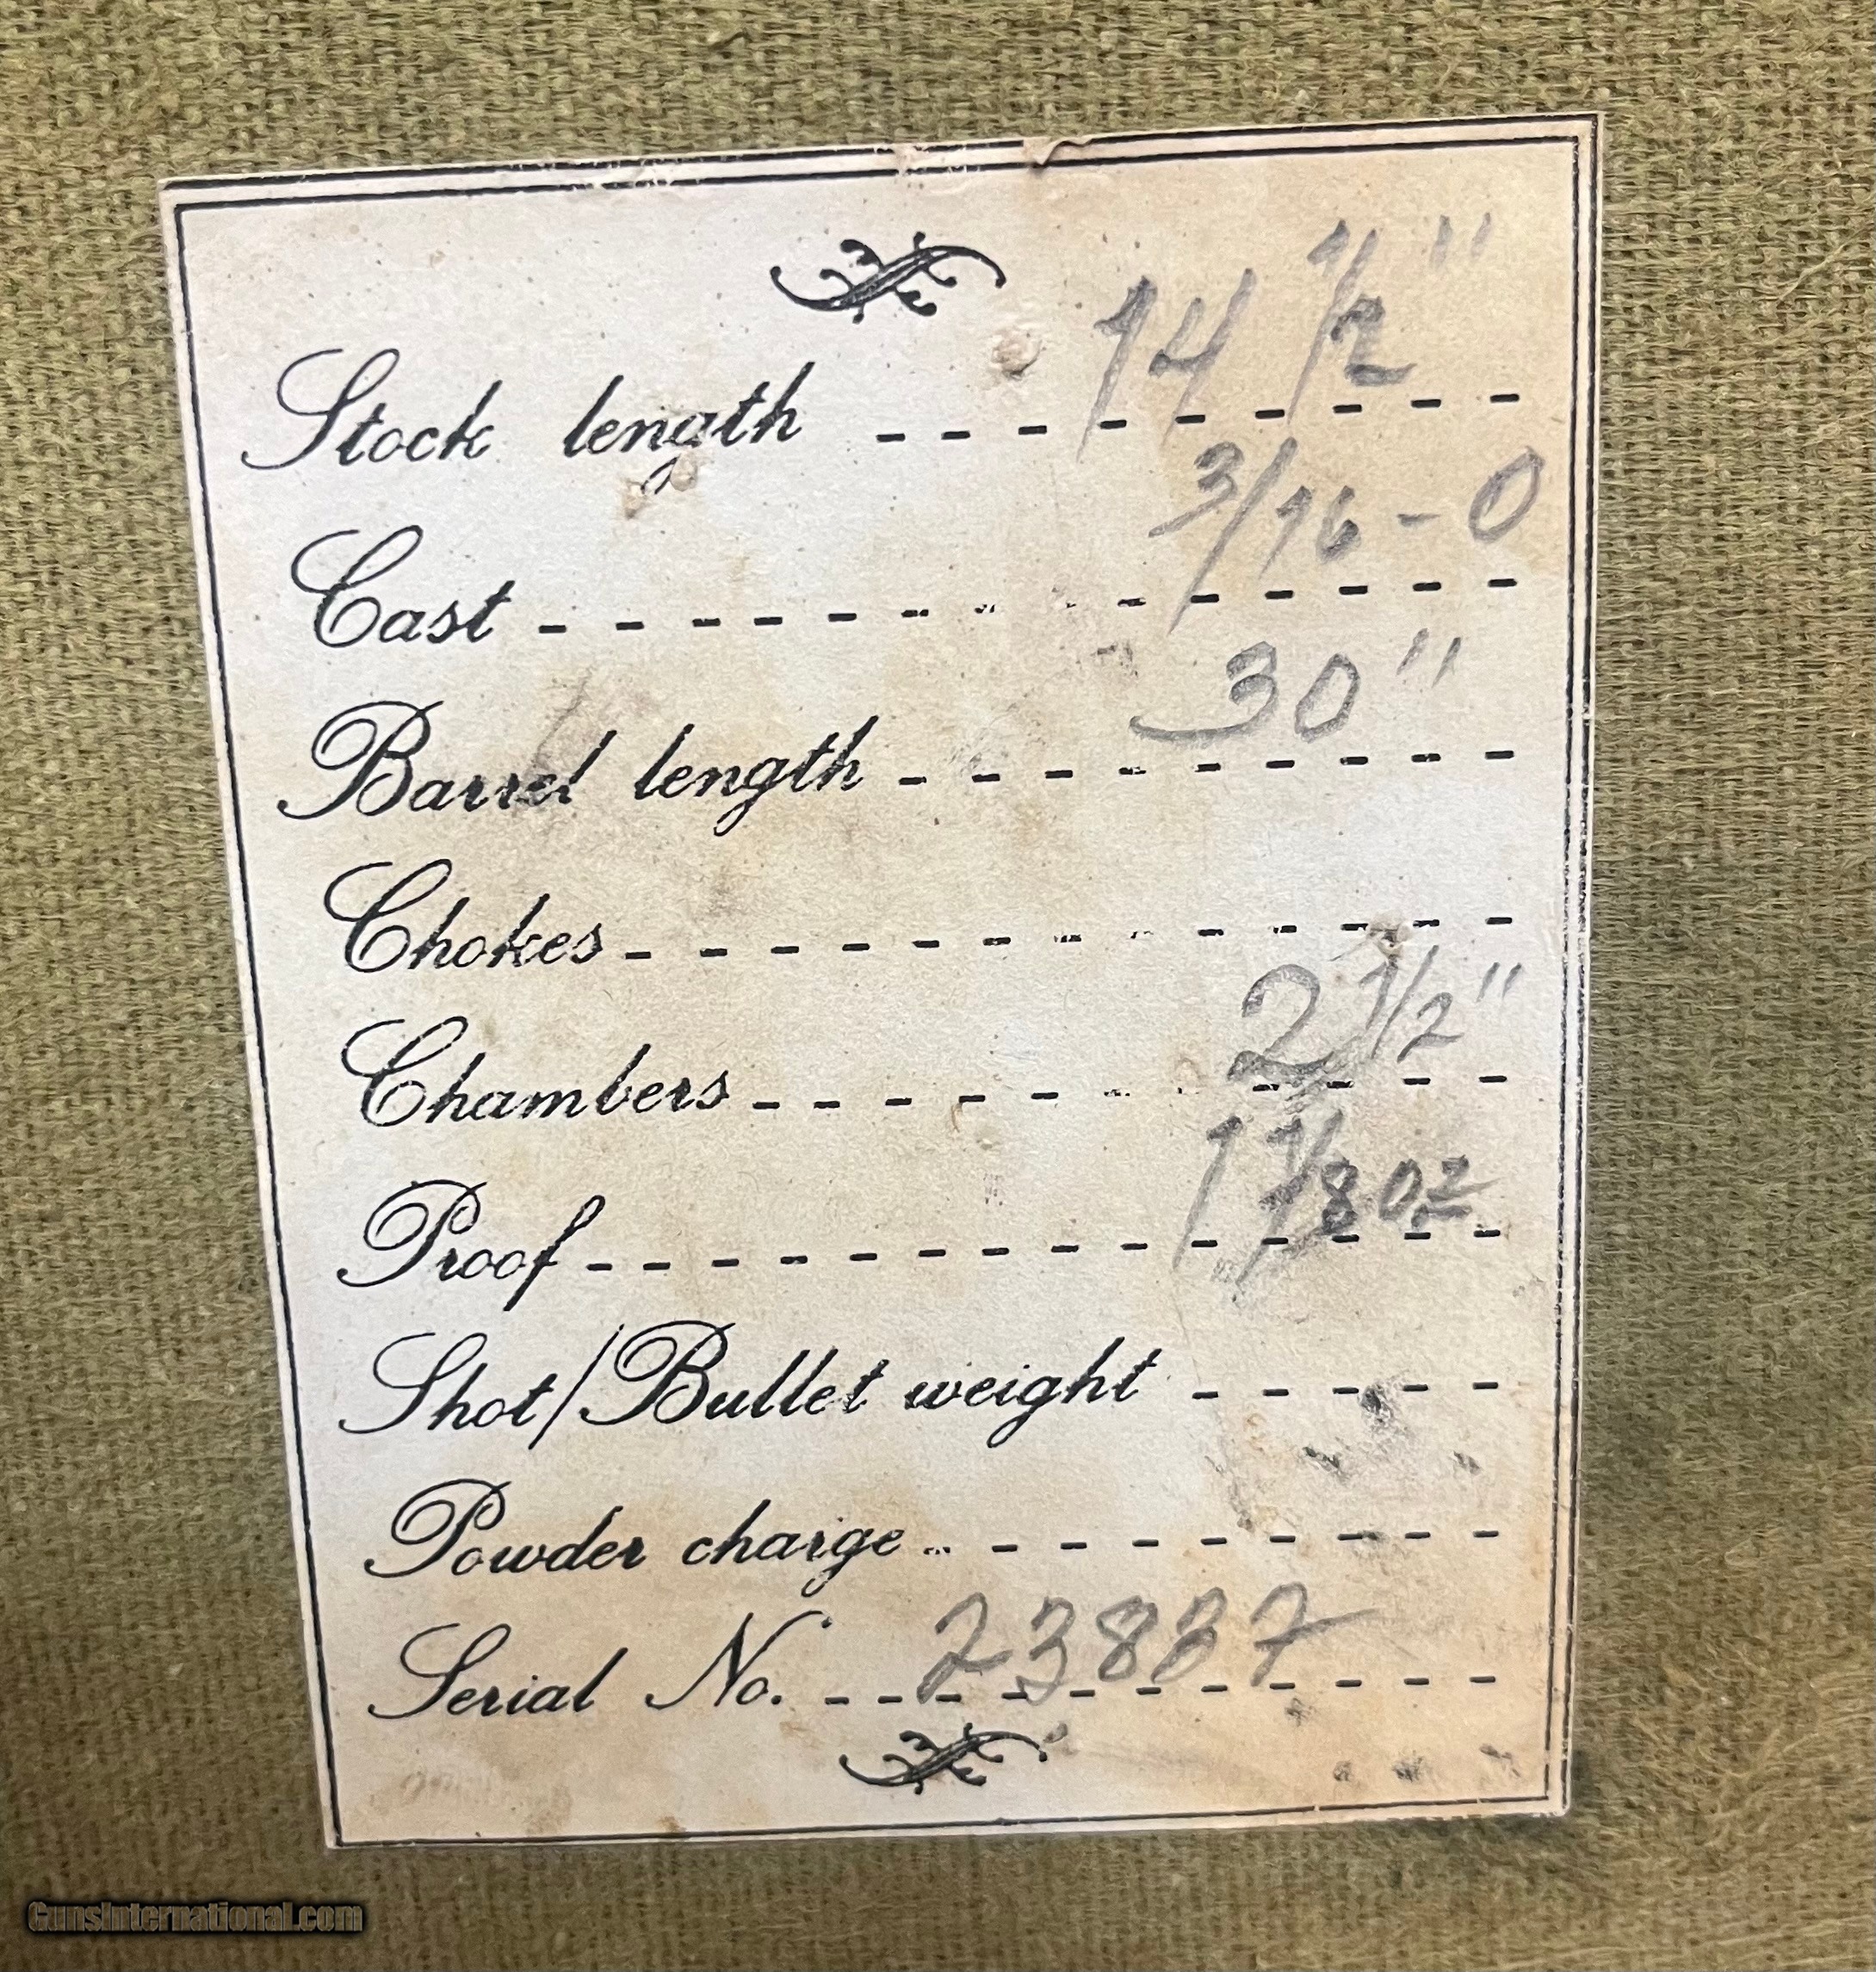 Stock length - - - - - - - - - 14 1/2"
Cast - - - - - - - - - - - - - - 3/16 - 0
Barrel length - - - - - - - - - 30"
Chokes - - - - - - - - - - - - -
Chambers - - - - - - - - - - - 2 1/2"
Proof - - - - - - - - - - - - - - 1 1/8 oz
Shot/Bullet weight - - - - -
Powder charge - - - - - - - - -
Serial No. - - - - - - - - - - 23837
GunsInternational.com